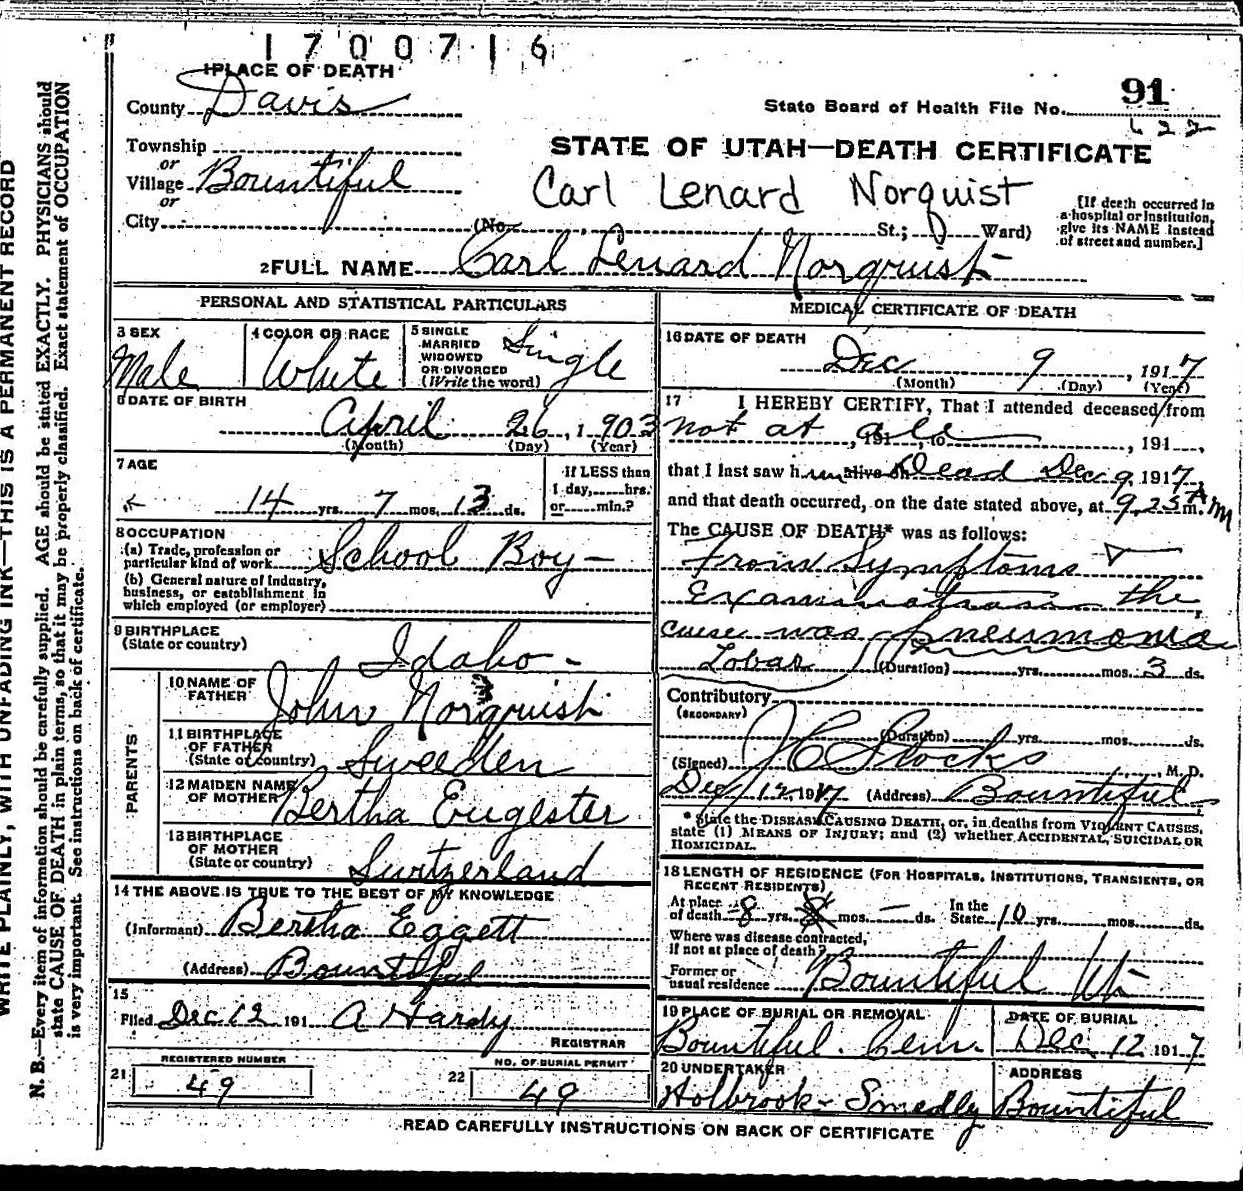 1700716
1 PLACE OF DEATH
County Davis
State Board of Health File No. 91
622
Township
or
Village Bountiful
or
City
STATE OF UTAH—DEATH CERTIFICATE
Carl Lenard Norquist
(No. St.; Ward)
[If death occurred in
a hospital or institution,
give its NAME instead
of street and number.]
2 FULL NAME Carl Lenard Norquist
PERSONAL AND STATISTICAL PARTICULARS
3 SEX
Male
4 COLOR OR RACE
White
5 SINGLE
MARRIED
WIDOWED
OR DIVORCED
(Write the word)
Single
6 DATE OF BIRTH
April 26, 1903
(Month) (Day) (Year)
7 AGE
14 yrs. 7 mos. 13 ds.
If LESS than
1 day, hrs.
or min.?
8 OCCUPATION
(a) Trade, profession or
particular kind of work School Boy
(b) General nature of Industry,
business, or establishment in
which employed (or employer)
9 BIRTHPLACE
(State or country) Idaho
PARENTS
10 NAME OF
FATHER John Norquish
11 BIRTHPLACE
OF FATHER
(State or country) Sweeden
12 MAIDEN NAME
OF MOTHER Bertha Eugester
13 BIRTHPLACE
OF MOTHER
(State or country) Switzerland
14 THE ABOVE IS TRUE TO THE BEST OF MY KNOWLEDGE
(Informant) Bertha Eggett
(Address) Bountiful
15
Filed Dec 12 191 A Hardy
REGISTRAR
REGISTERED NUMBER
21 49
NO. OF BURIAL PERMIT
22 49
MEDICAL CERTIFICATE OF DEATH
16 DATE OF DEATH
Dec 9, 1917
(Month) (Day) (Year)
17 I HEREBY CERTIFY, That I attended deceased from
not at all, 191, to, 191,
that I last saw him alive on Dead Dec 9, 1917,
and that death occurred, on the date stated above, at 9.25 A m. M
The CAUSE OF DEATH* was as follows:
From Symptoms
Examination the
cause was Pneumonia
Lobar (Duration) yrs. mos. 3 ds.
Contributory
(SECONDARY)
(Duration) yrs. mos. ds.
(Signed) J C Stocks, M. D.
Dec 12, 1917 (Address) Bountiful
* State the DISEASE CAUSING DEATH, or, in deaths from VIOLENT CAUSES,
state (1) MEANS OF INJURY; and (2) whether ACCIDENTAL, SUICIDAL OR
HOMICIDAL.
18 LENGTH OF RESIDENCE (FOR HOSPITALS, INSTITUTIONS, TRANSIENTS, OR
RECENT RESIDENTS)
At place
of death 8 yrs. mos. ds.
In the
State 10 yrs. mos. ds.
Where was disease contracted,
if not at place of death?
Former or
usual residence Bountiful Ut
19 PLACE OF BURIAL OR REMOVAL
Bountiful Cem.
DATE OF BURIAL
Dec 12 1917
20 UNDERTAKER
Holbrook - Smedly
ADDRESS
Bountiful
READ CAREFULLY INSTRUCTIONS ON BACK OF CERTIFICATE
WRITE PLAINLY, WITH UNFADING INK—THIS IS A PERMANENT RECORD
N. B.—Every item of information should be carefully supplied. AGE should be stated EXACTLY. PHYSICIANS should
state CAUSE OF DEATH in plain terms, so that it may be properly classified. Exact statement of OCCUPATION
is very important. See instructions on back of certificate.